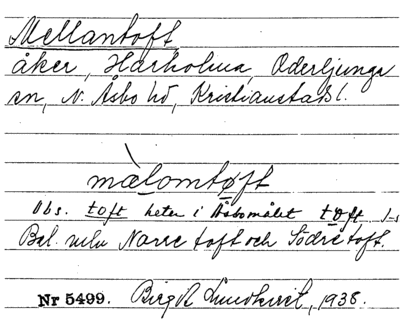 Mellantoft
åker, Harholma, Oderljunga
sn, N. Åsbo hd, Kristianstads l.
mælomtøft
Obs. toft heter i Åsbomålet tøft
Bel. mln Norre toft och Södre toft.
Nr 5499. Birgit Lundkvist, 1938.